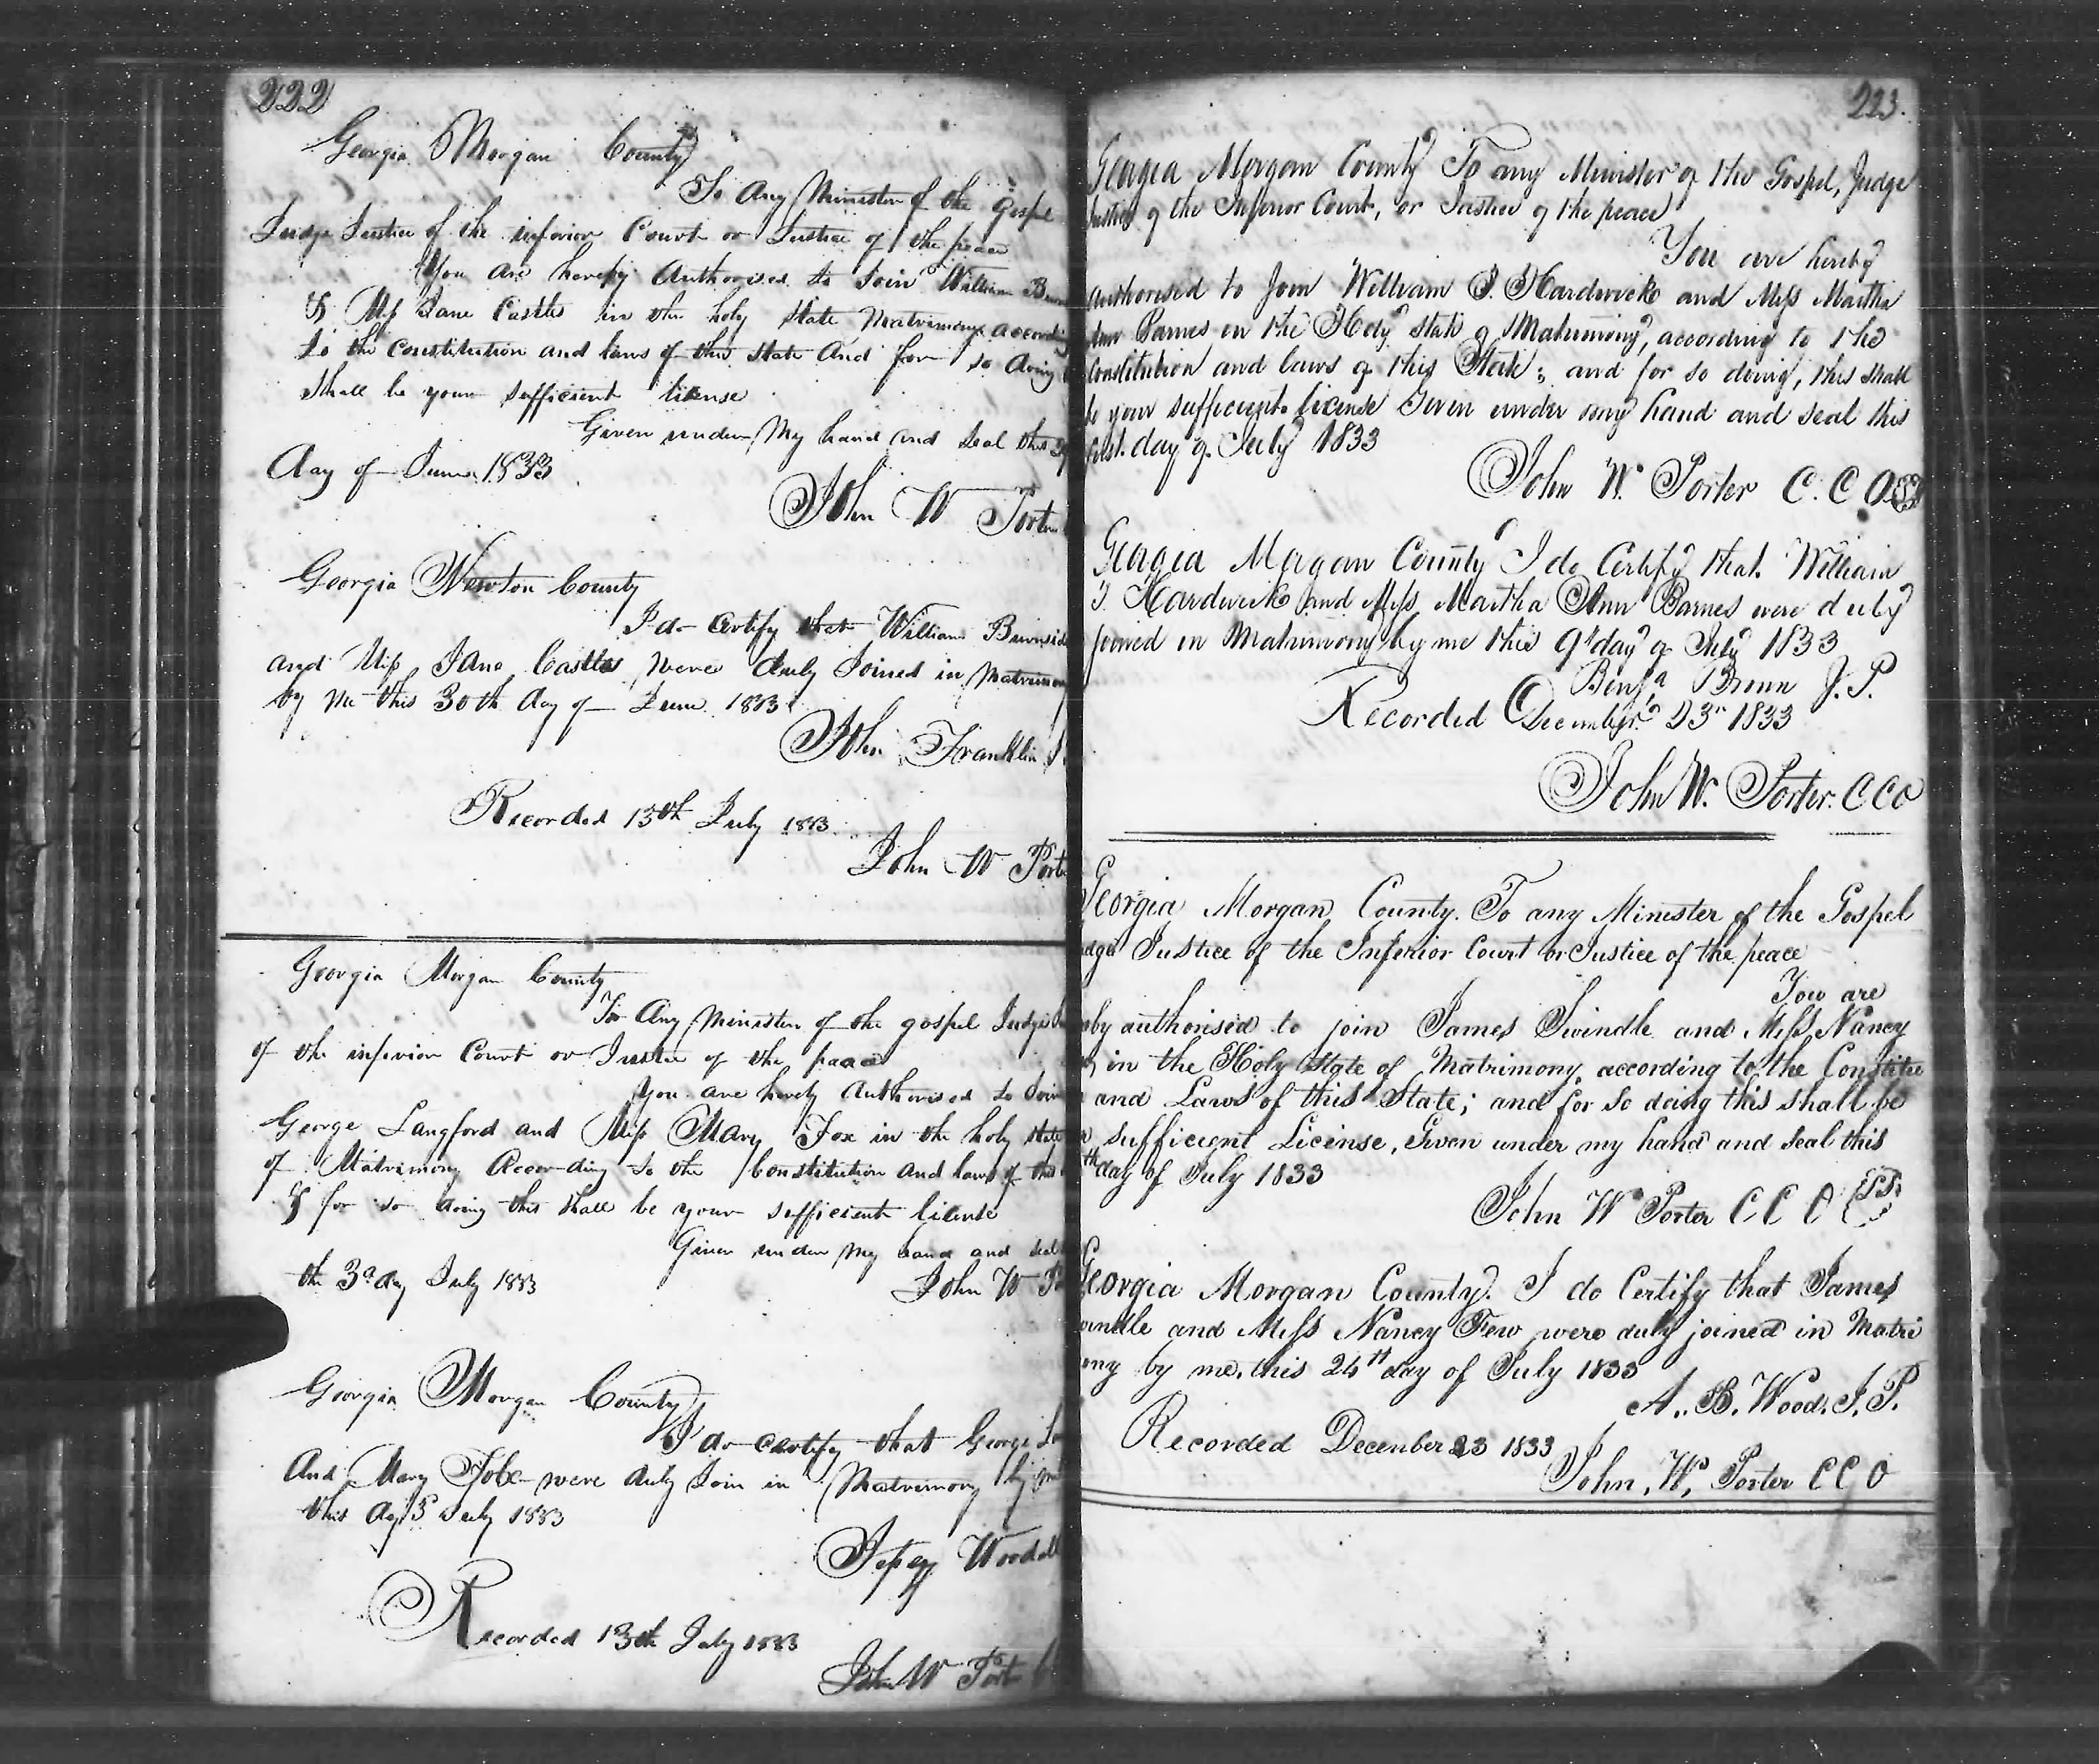 222
Georgia Morgan County
To Any Minister of the Gospel
Judge Justice of the inferior Court or Justice of the peace
You are hereby Authorised to Join William
& Miss Jane Castles in the holy State Matrimony
to the Constitution and laws of this State And for so doing
Shall be your sufficient license
Given under My hand and Seal this
day of June 1833
John W Porter
Georgia Newton County
I do Certify that William Burnside
and Miss Jane Castles were duly Joined in
by me this 30th day of June 1833
John Franklin
Recorded 13th July 1833
John W
Georgia Morgan County
To Any Minister of the gospel Judge
of the inferior Court or Justice of the peace
You are hereby Authorised to Join
George Langford and Miss Mary Fox in the holy State
of Matrimony According to the Constitution and laws of this
& for so doing this Shall be your sufficient license
Given under My hand and Seal
the 3d day July 1833
John W
Georgia Morgan County
I do certify that George
And Mary were duly Join in Matrimony by
this day 5 July 1833
Recorded 13th July 1833
John W
223.
Georgia Morgan County To any Minister of the Gospel, Judge
Justice of the Inferior Court, or Justice of the peace
You are hereby
Authorised to Join William J. Hardwick and Miss Martha
Ann Barnes in the Holy State of Matrimony, according to the
Constitution and laws of this State; and for so doing, this shall
be your sufficient license Given under my hand and seal this
first day of July 1833
John W. Porter C. C. O
Georgia Morgan County I do Certify that William
J. Hardwick and Miss Martha Ann Barnes were duly
joined in Matrimony by me this 9t day of July 1833
Benja Brown J. P.
Recorded December 23rd 1833
John W. Porter. CCO
Georgia Morgan County. To any Minester of the Gospel
Justice of the Inferior Court or Justice of the peace
You are
authorised to join James Swindle and Miss Nancy
in the Holy State of Matrimony, according to the Constitu
and Laws of this State; and for so doing this shall be
sufficient License, Given under my hand and seal this
th day of July 1833
John W Porter C C O
Georgia Morgan County. I do Certify that James
and Miss Nancy Few were duly joined in Matri
ony by me, this 24th day of July 1833
A. B. Wood. J. P.
Recorded December 23 1833
John, W, Porter CCO